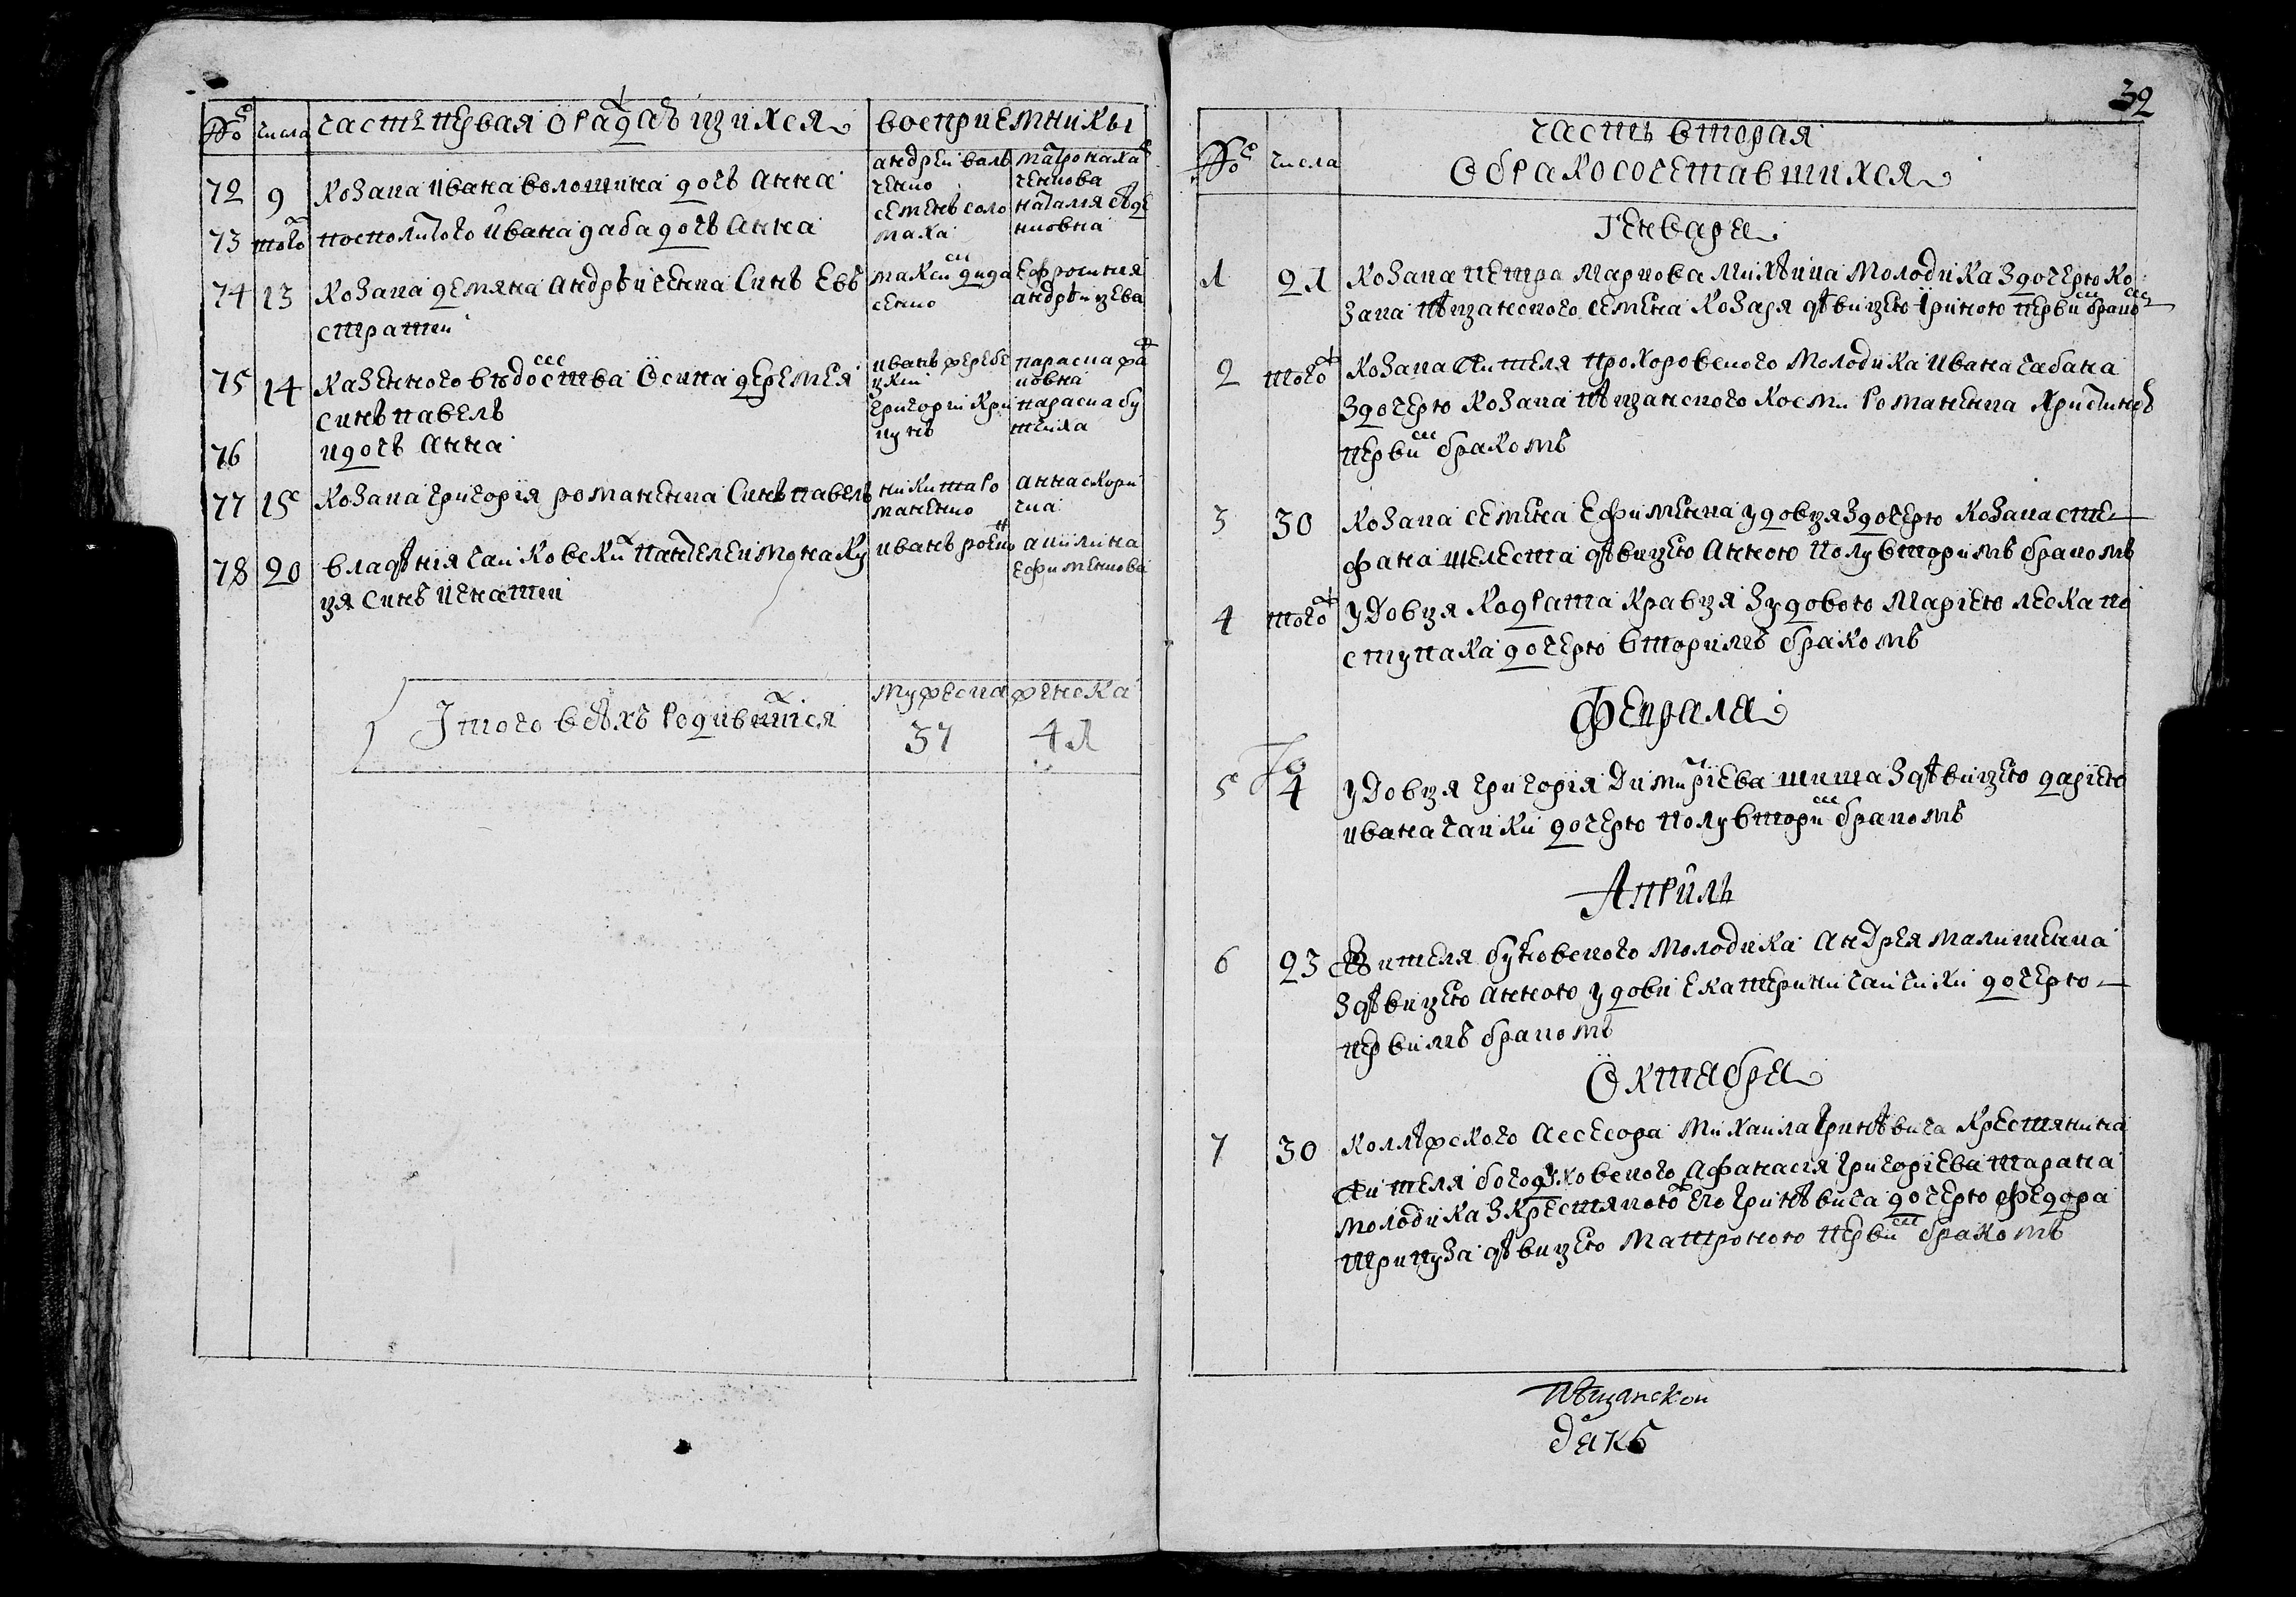 № числа часть первая о раждаѣщихся восприемникы
72 9 козака ивана волошина дочъ анна
андрей вал ченко
матрона ха ченкова
73 того посполитого ивана даба дочъ анна
семенъ соло маха
наталия
74 13 козака демяна андрѣйченка синъ евъ
стратий
максим дида сенко
ефросиния андрѣйцева
75 14 казенного вѣдомства осипа деремея
синъ павелъ
иванъ
параска
76 и дочъ анна
григорий кри
параска бу
77 15 козака григория романенка синъ павелъ
никита ро маненко
анна скори
78 20 владѣния чайковски пантелеимона ку
ця синъ игнатий
иванъ
акилина ефименкова
Итого всѣхъ родившихся
мужеска женска
37 41
32
часть вторая
№ числа
о бракосочетавшихся
генваря
1 21 козака петра маркова михѣйца молодика з дочерю ко
зака пѣщанского семена козаря дѣвицею ириною первим браком
2 того козака жителя прохоровского молодика ивана чабана
з дочерю козака пѣщанского кости романенка христиною
первим бракомъ
3 30 козака семена ефименка удовця з дочерю козака сте
фана шелеста дѣвицею анною полувторимъ бракомъ
4 того удовця кодрата кравця з удовою мариею леска по
ступака дочерю вторимъ бракомъ
февраля
5 4 удовця григория димитриева шиша з дѣвицею дариею
ивана чайки дочерю полувторим бракомъ
априль
6 23 жителя бубновского молодика андрея малишенка
з дѣвицею анною удови екатерини чайчихи дочерю
первимъ бракомъ
октября
7 30 коллѣжского ассесора михаила гринѣвича крестянина
жителя богодуховского афанасия григориева тарана
молодика з крестянкою его гринѣвича дочерю федора
дѣвицею матроною первим бракомъ
пѣщанской
дякъ